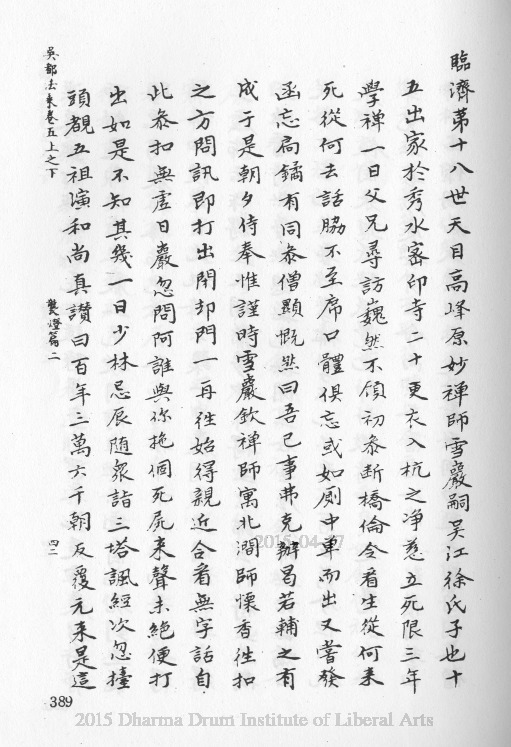 臨濟第十八世天目高峰原妙禪師雪巖嗣吳江徐氏子也十
五出家於秀水密印寺二十更衣入杭之淨慈立死限三年
學禪一日父兄尋訪巍然不領初參斷橋倫令看生從何來
死從何去話脇不至席口體俱忘或如廁中單而出又嘗發
函忘扃鐍有同參僧顯慨然曰吾己事弗克辦曷若輔之有
成于是朝夕侍奉惟謹時雪巖欽禪師寓北澗師懷香徃扣
之方問訊即打出閉却門一再徃始得親近合看無字話自
此參扣無虛日巖忽問阿誰與你拖個死屍來聲未絕便打
出如是不知其幾一日少林忌辰随衆詣三塔諷經次忽擡
頭覩五祖演和尚真讃曰百年三萬六千朝反覆元来是這
吳都法乘卷五上之下
襲燈篇二
四二
389
2015-04-17
2015 Dharma Drum Institute of Liberal Arts